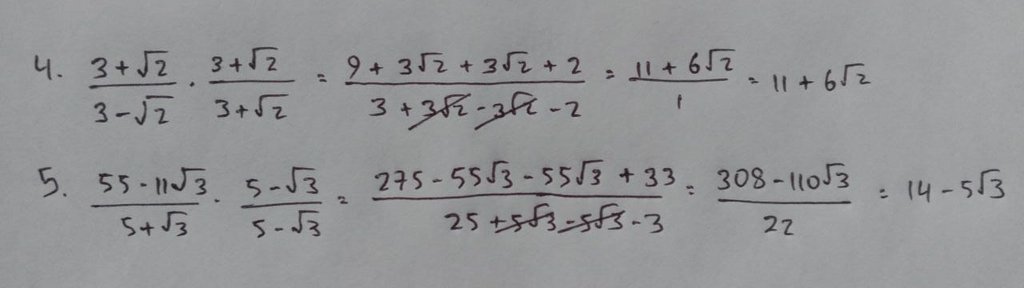 4. (3+√2)/(3-√2) · (3+√2)/(3+√2) = (9+3√2+3√2+2)/(3+3√2-3√2-2) = (11+6√2)/1 = 11+6√2
5. (55-11√3)/(5+√3) · (5-√3)/(5-√3) = (275-55√3-55√3+33)/(25+5√3-5√3-3) = (308-110√3)/22 = 14-5√3